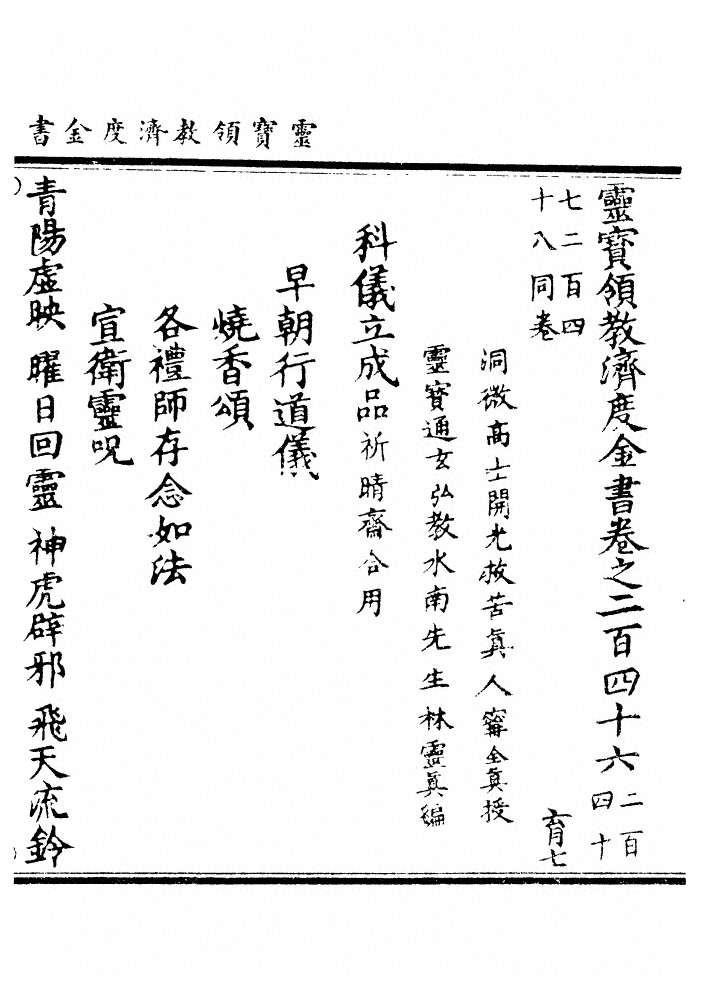 靈寶領教濟度金書
靈寶領教濟度金書卷之二百四十六二百四十
七二百四
十八同卷
育七
洞微高士開光救苦真人甯全真授
靈寶通玄弘教水南先生林靈真編
科儀立成品祈晴齋合用
早朝行道儀
燒香頌
各禮師存念如法
宣衛靈呪
青陽虛映 曜日回靈 神虎辟邪 飛天流鈴